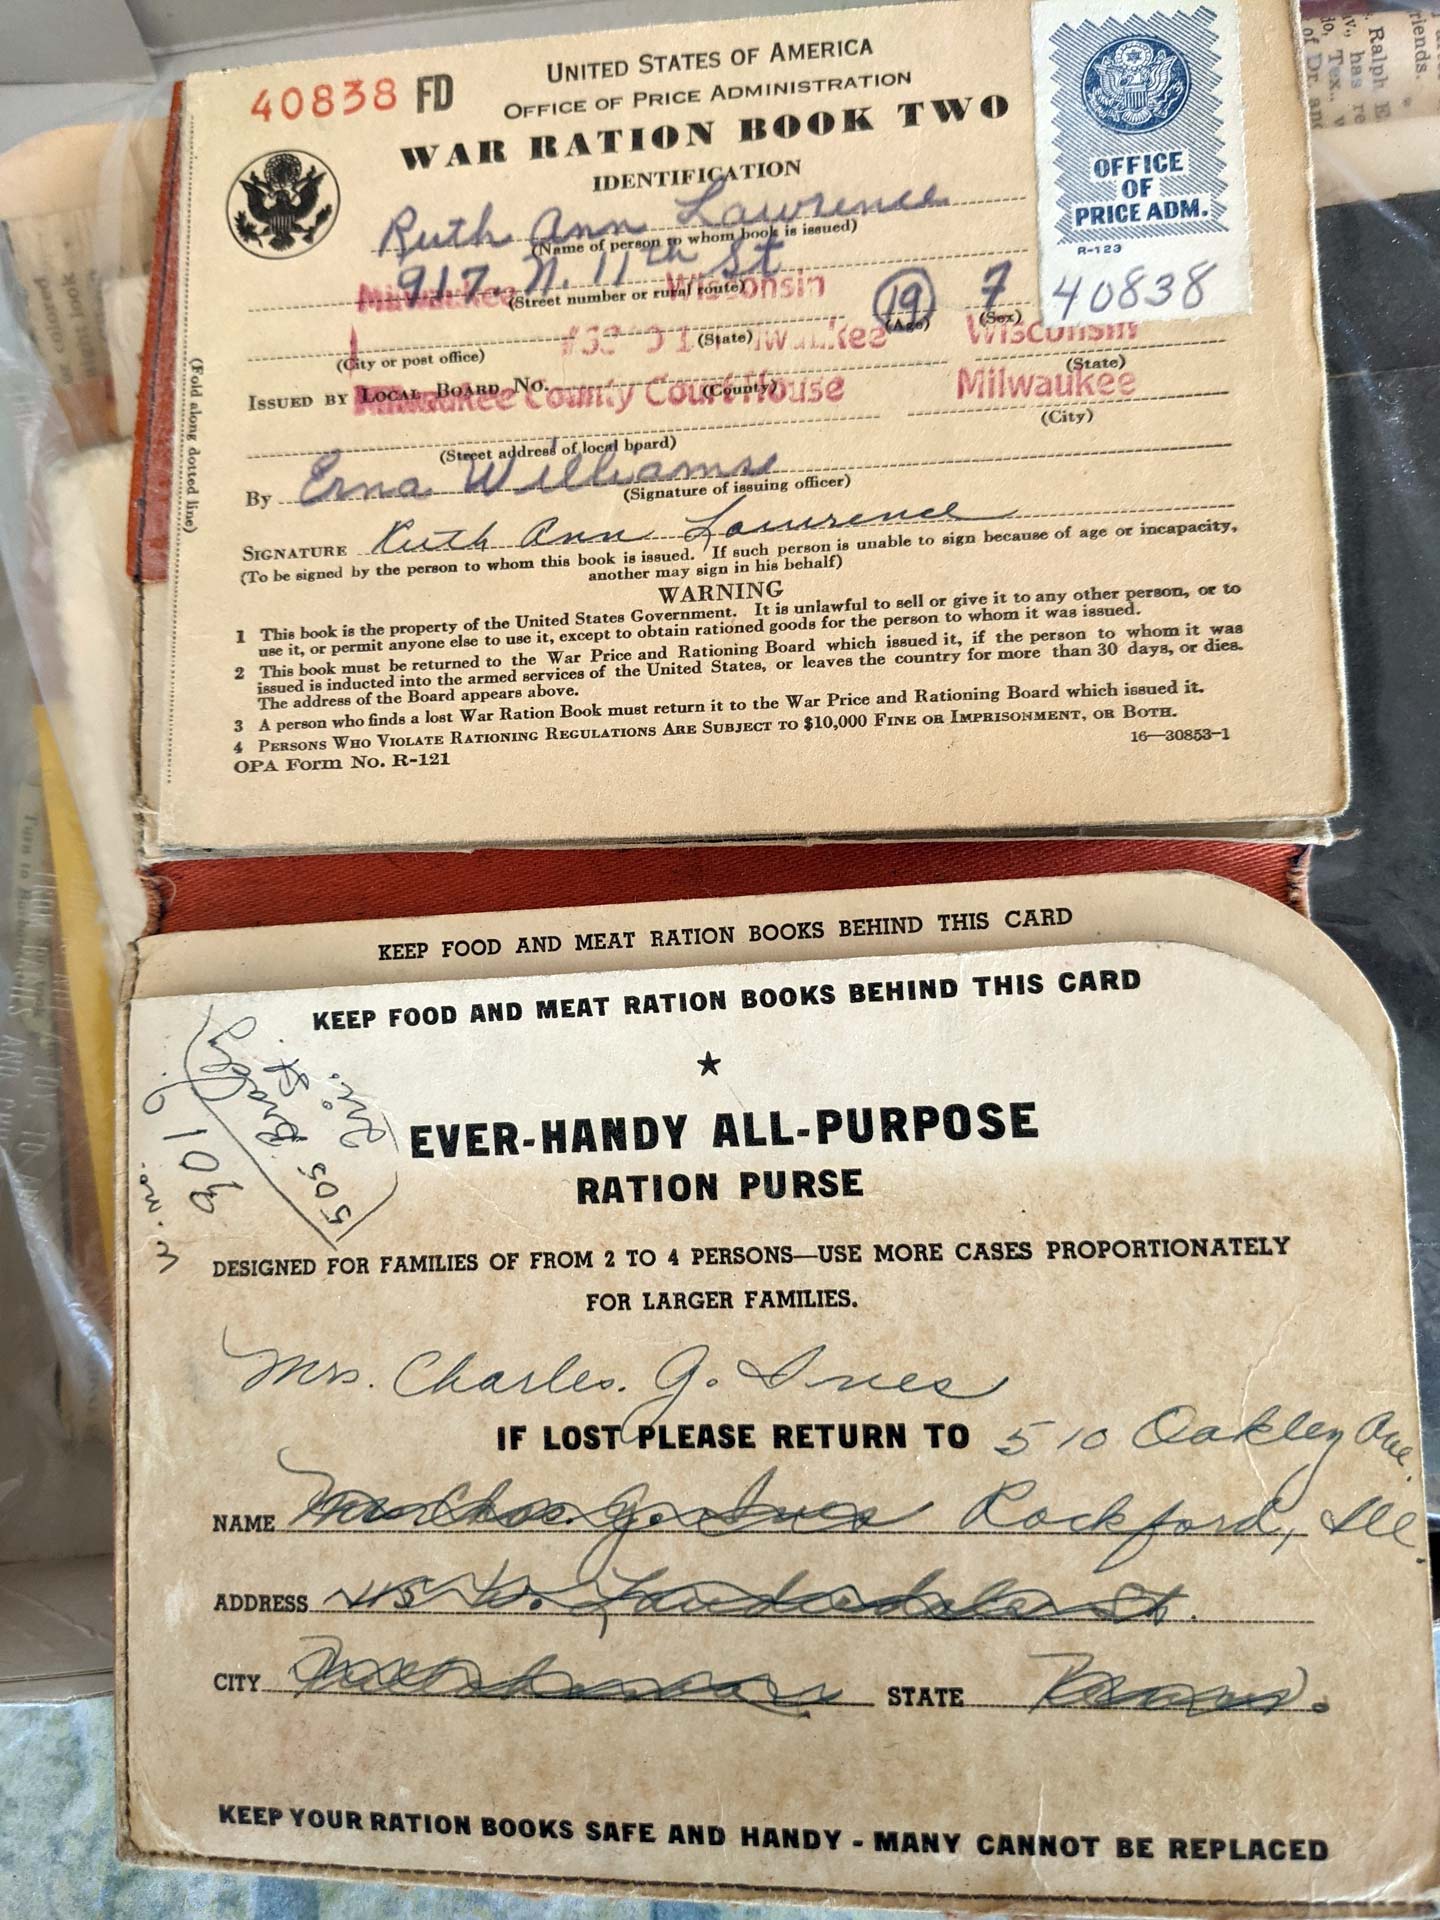 40838 FD
UNITED STATES OF AMERICA
OFFICE OF PRICE ADMINISTRATION
WAR RATION BOOK TWO
IDENTIFICATION
OFFICE
OF
PRICE ADM.
R-123
40838
Ruth Ann Lawrence
(Name of person to whom book is issued)
917 N. 11th St
Milwaukee Wisconsin
(Street number or rural route)
19 F
(Age) (Sex)
(City or post office) (State)
Milwaukee Wisconsin
(County) (State)
ISSUED BY LOCAL BOARD NO.
Milwaukee County Court House Milwaukee
(Street address of local board) (City)
By Erna Williams
(Signature of issuing officer)
SIGNATURE Ruth Ann Lawrence
(To be signed by the person to whom this book is issued. If such person is unable to sign because of age or incapacity,
another may sign in his behalf)
(Fold along dotted line)
WARNING
1 This book is the property of the United States Government. It is unlawful to sell or give it to any other person, or to
use it, or permit anyone else to use it, except to obtain rationed goods for the person to whom it was issued.
2 This book must be returned to the War Price and Rationing Board which issued it, if the person to whom it was
issued is inducted into the armed services of the United States, or leaves the country for more than 30 days, or dies.
The address of the Board appears above.
3 A person who finds a lost War Ration Book must return it to the War Price and Rationing Board which issued it.
4 PERSONS WHO VIOLATE RATIONING REGULATIONS ARE SUBJECT TO $10,000 FINE OR IMPRISONMENT, OR BOTH.
OPA Form No. R-121 16—30853-1
KEEP FOOD AND MEAT RATION BOOKS BEHIND THIS CARD
KEEP FOOD AND MEAT RATION BOOKS BEHIND THIS CARD
EVER-HANDY ALL-PURPOSE
RATION PURSE
505
DESIGNED FOR FAMILIES OF FROM 2 TO 4 PERSONS—USE MORE CASES PROPORTIONATELY
FOR LARGER FAMILIES.
Mrs. Charles. G. Ives
IF LOST PLEASE RETURN TO 510 Oakley Ave.
NAME Mrs Chas. G. Ives Rockford, Ill.
ADDRESS St.
CITY STATE
KEEP YOUR RATION BOOKS SAFE AND HANDY - MANY CANNOT BE REPLACED
riends.
Ralph E
has re
Tex.
of Dr. and